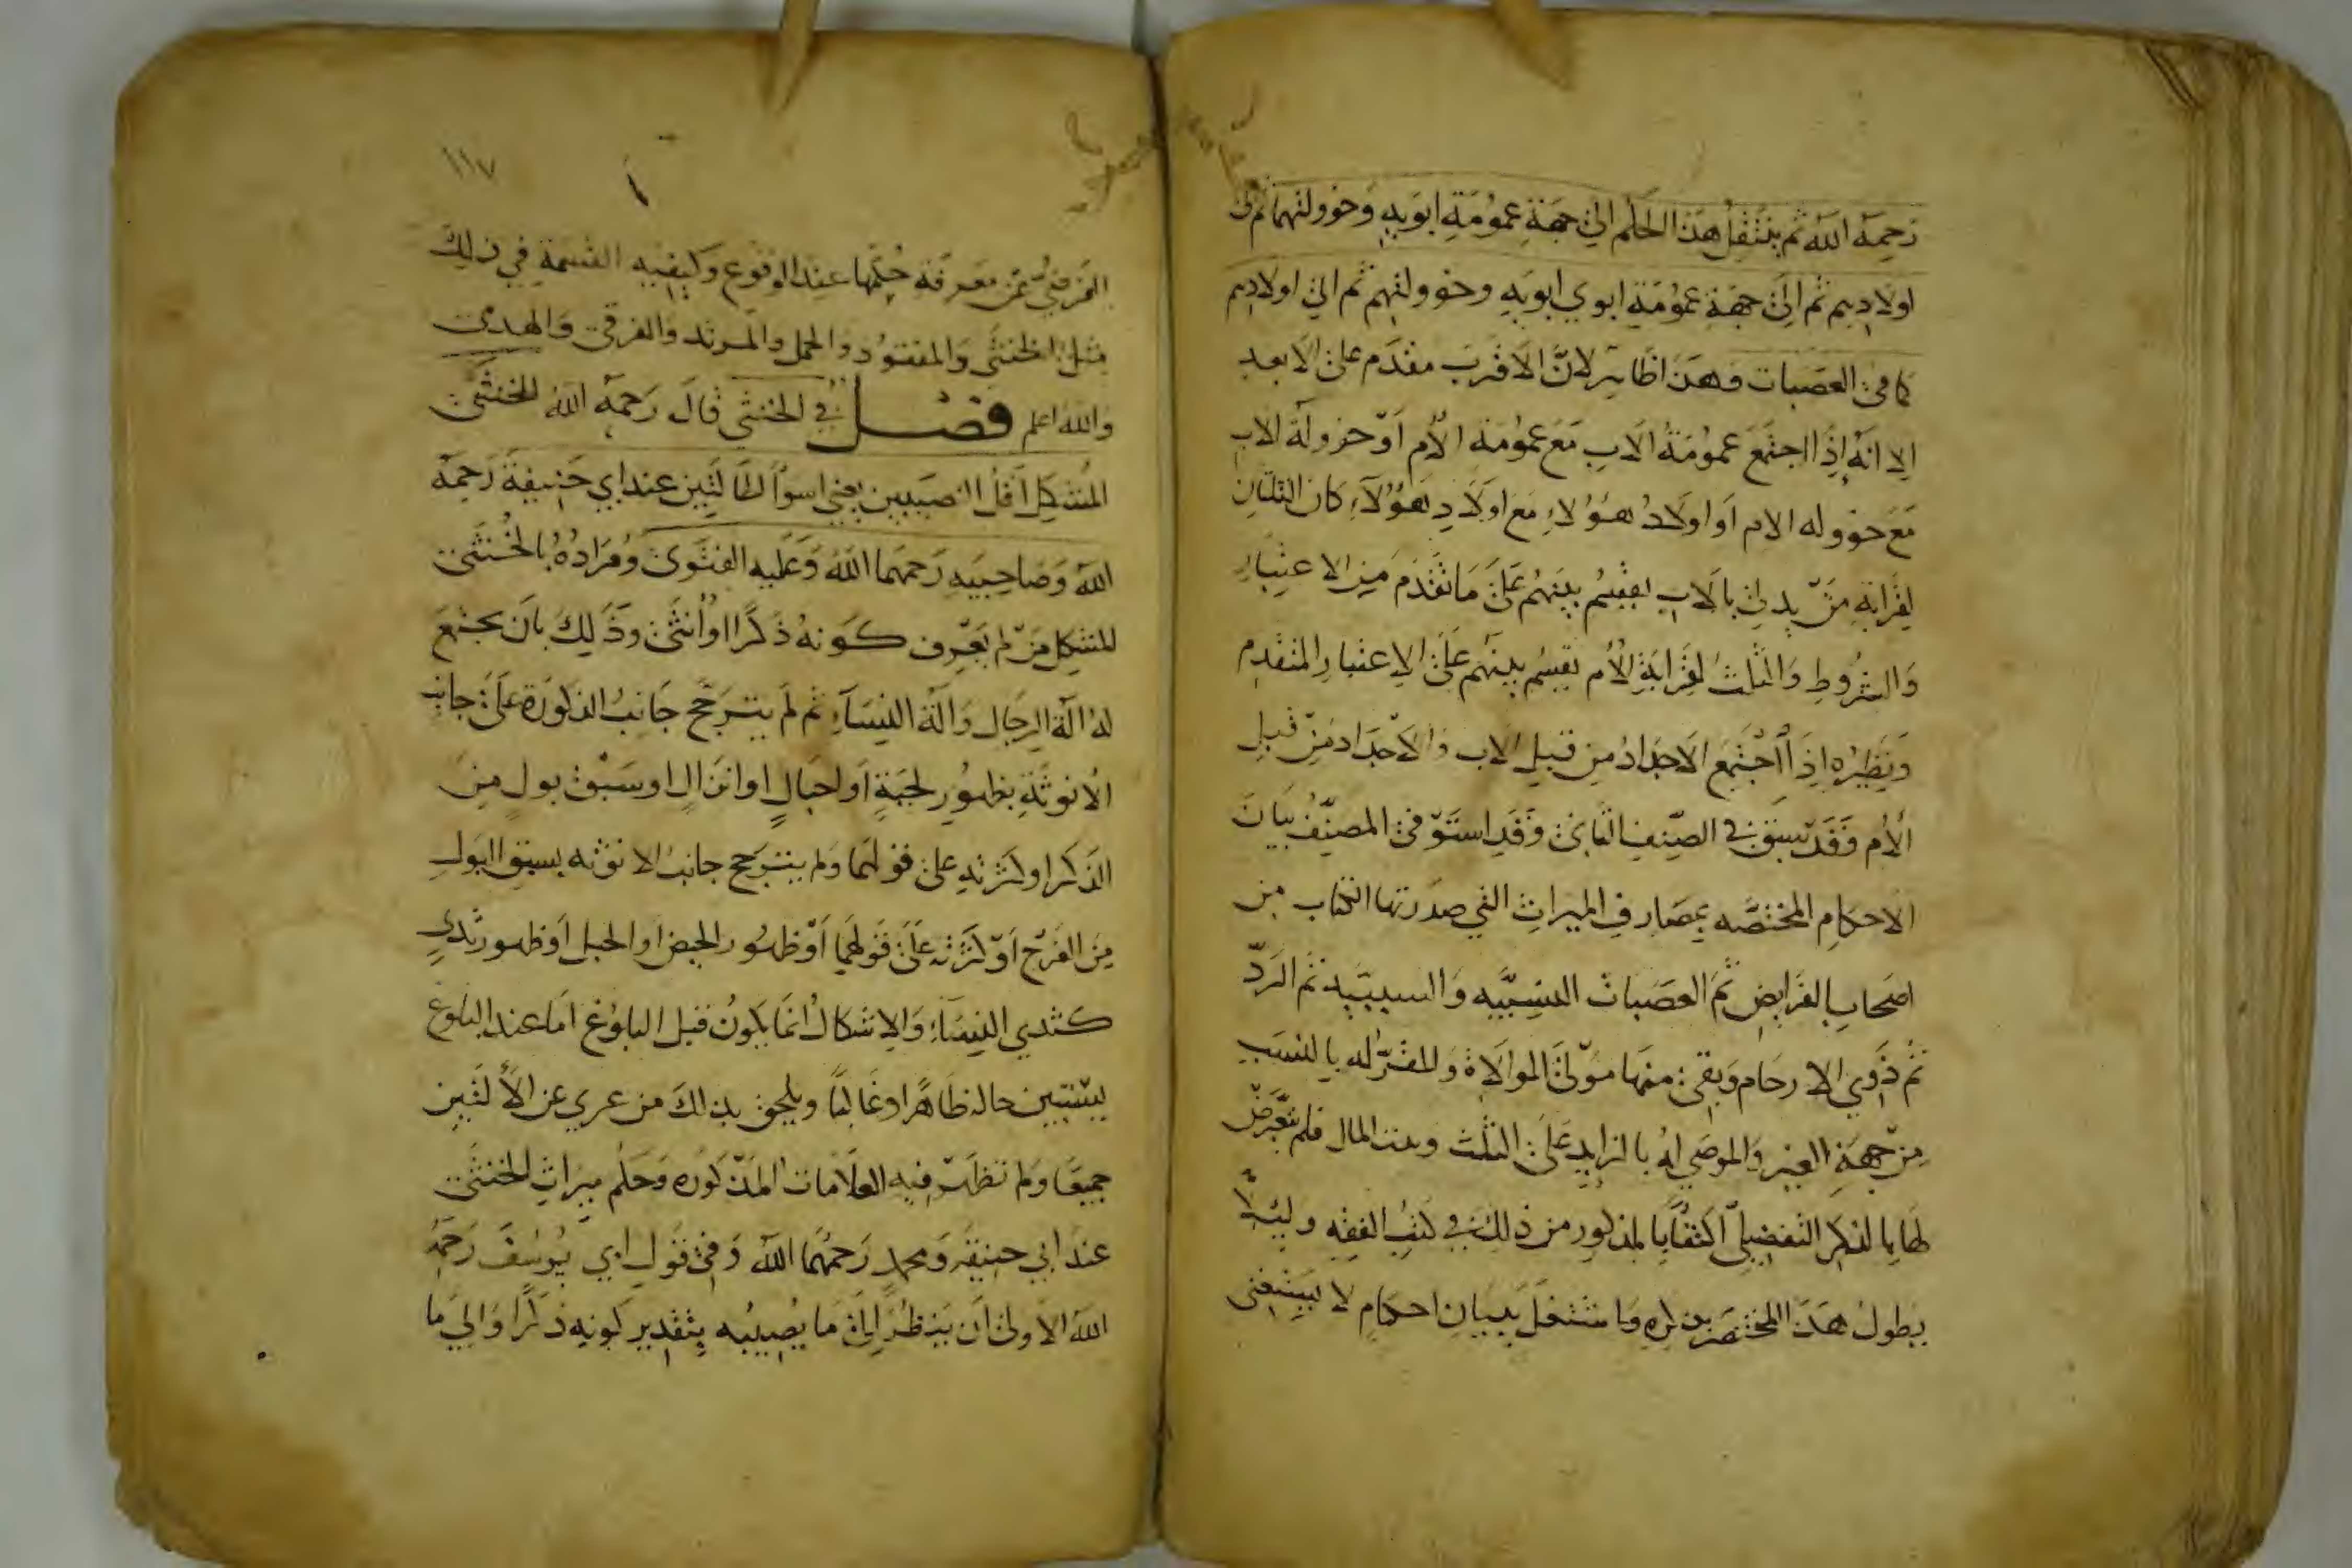 رحمه الله ثم ينتقل هذا الحكم الى جهة عمومة ابويه وخوولتهما ثم الى
اولادهم ثم الى جهة عمومة ابوي ابويه وخوولتهم ثم الى اولادهم
كما في العصبات وهذا ظاهر لان الاقرب مقدم على الابعد
الا انه اذا اجتمع عمومة الاب مع عمومة الام او خوولة الاب
مع خووله الام او اولاد هؤلاء مع اولاد هؤلاء كان الثلثان
لقرابة من يدلى بالاب يقسم بينهم على ما تقدم من الاعتبار
والشروط والثلث لقرابة الام يقسم بينهم على الاعتبار المتقدم
ونظيره اذا اجتمع الاجداد من قبل الاب والاجداد من قبل
الام وقد سبق في الصنف الثاني وقد استوفى المصنف بيان
الاحكام المختصه بمصارف الميراث التي صدر بها الكتاب من
اصحاب الفرايض ثم العصبات النسبيه والسببيه ثم الرد
ثم ذوي الارحام وبقى منها مولى الموالاة والمقر له بالنسب
من جهة الغير والموصى له بالزايد على الثلث وبيت المال فلم يتعرض
لها بالذكر التفصيلي اكتفا بالمذكور من ذلك في كتب الفقه وليلا
يطول هذا المختصر بذكره واشتغل ببيان احكام لا يستغنى
١١٧
الفرضي عن معرفة حكمها عند الوقوع وكيفيه القسمة في ذلك
مثل الخنثى والمفقود والحمل والمرتد والغرقى والهدمى
والله اعلم فصل في الخنثى قال رحمه الله للخنثى
المشكل اقل النصيبين يعني اسوأ الحالتين عند ابي حنيفة رحمه
الله وصاحبيه رحمهما الله وعليه الفتوى ومراده بالخنثى
المشكل من لم يعرف كونه ذكرا او أنثى وذلك بان يجتمع
له الة الرجال والة النساء ثم لم يترجح جانب الذكورة على جانب
الانوثة بظهور لحية او احبال او انزال او سبق بول من
الذكر او كثرته على قولهما ولم يترجح جانب الانوثه بسبق البول
من الفرج او كثرته على قولهما او ظهور الحيض او الحبل او ظهور ثدي
كثدي النساء والاشكال انما يكون قبل البلوغ اما عند البلوغ
يستبين حاله ظاهرا وغالبا ويلحق بذلك من عري عن الألتين
جميعا ولم تظهر فيه العلامات المذكوره وحكم ميراث الخنثى
عند ابي حنيفه ومحمد رحمهما الله وفي قول ابي يوسف رحمه
الله الاولى ان ينظر الى ما يصيبه بتقدير كونه ذكرا والي ما